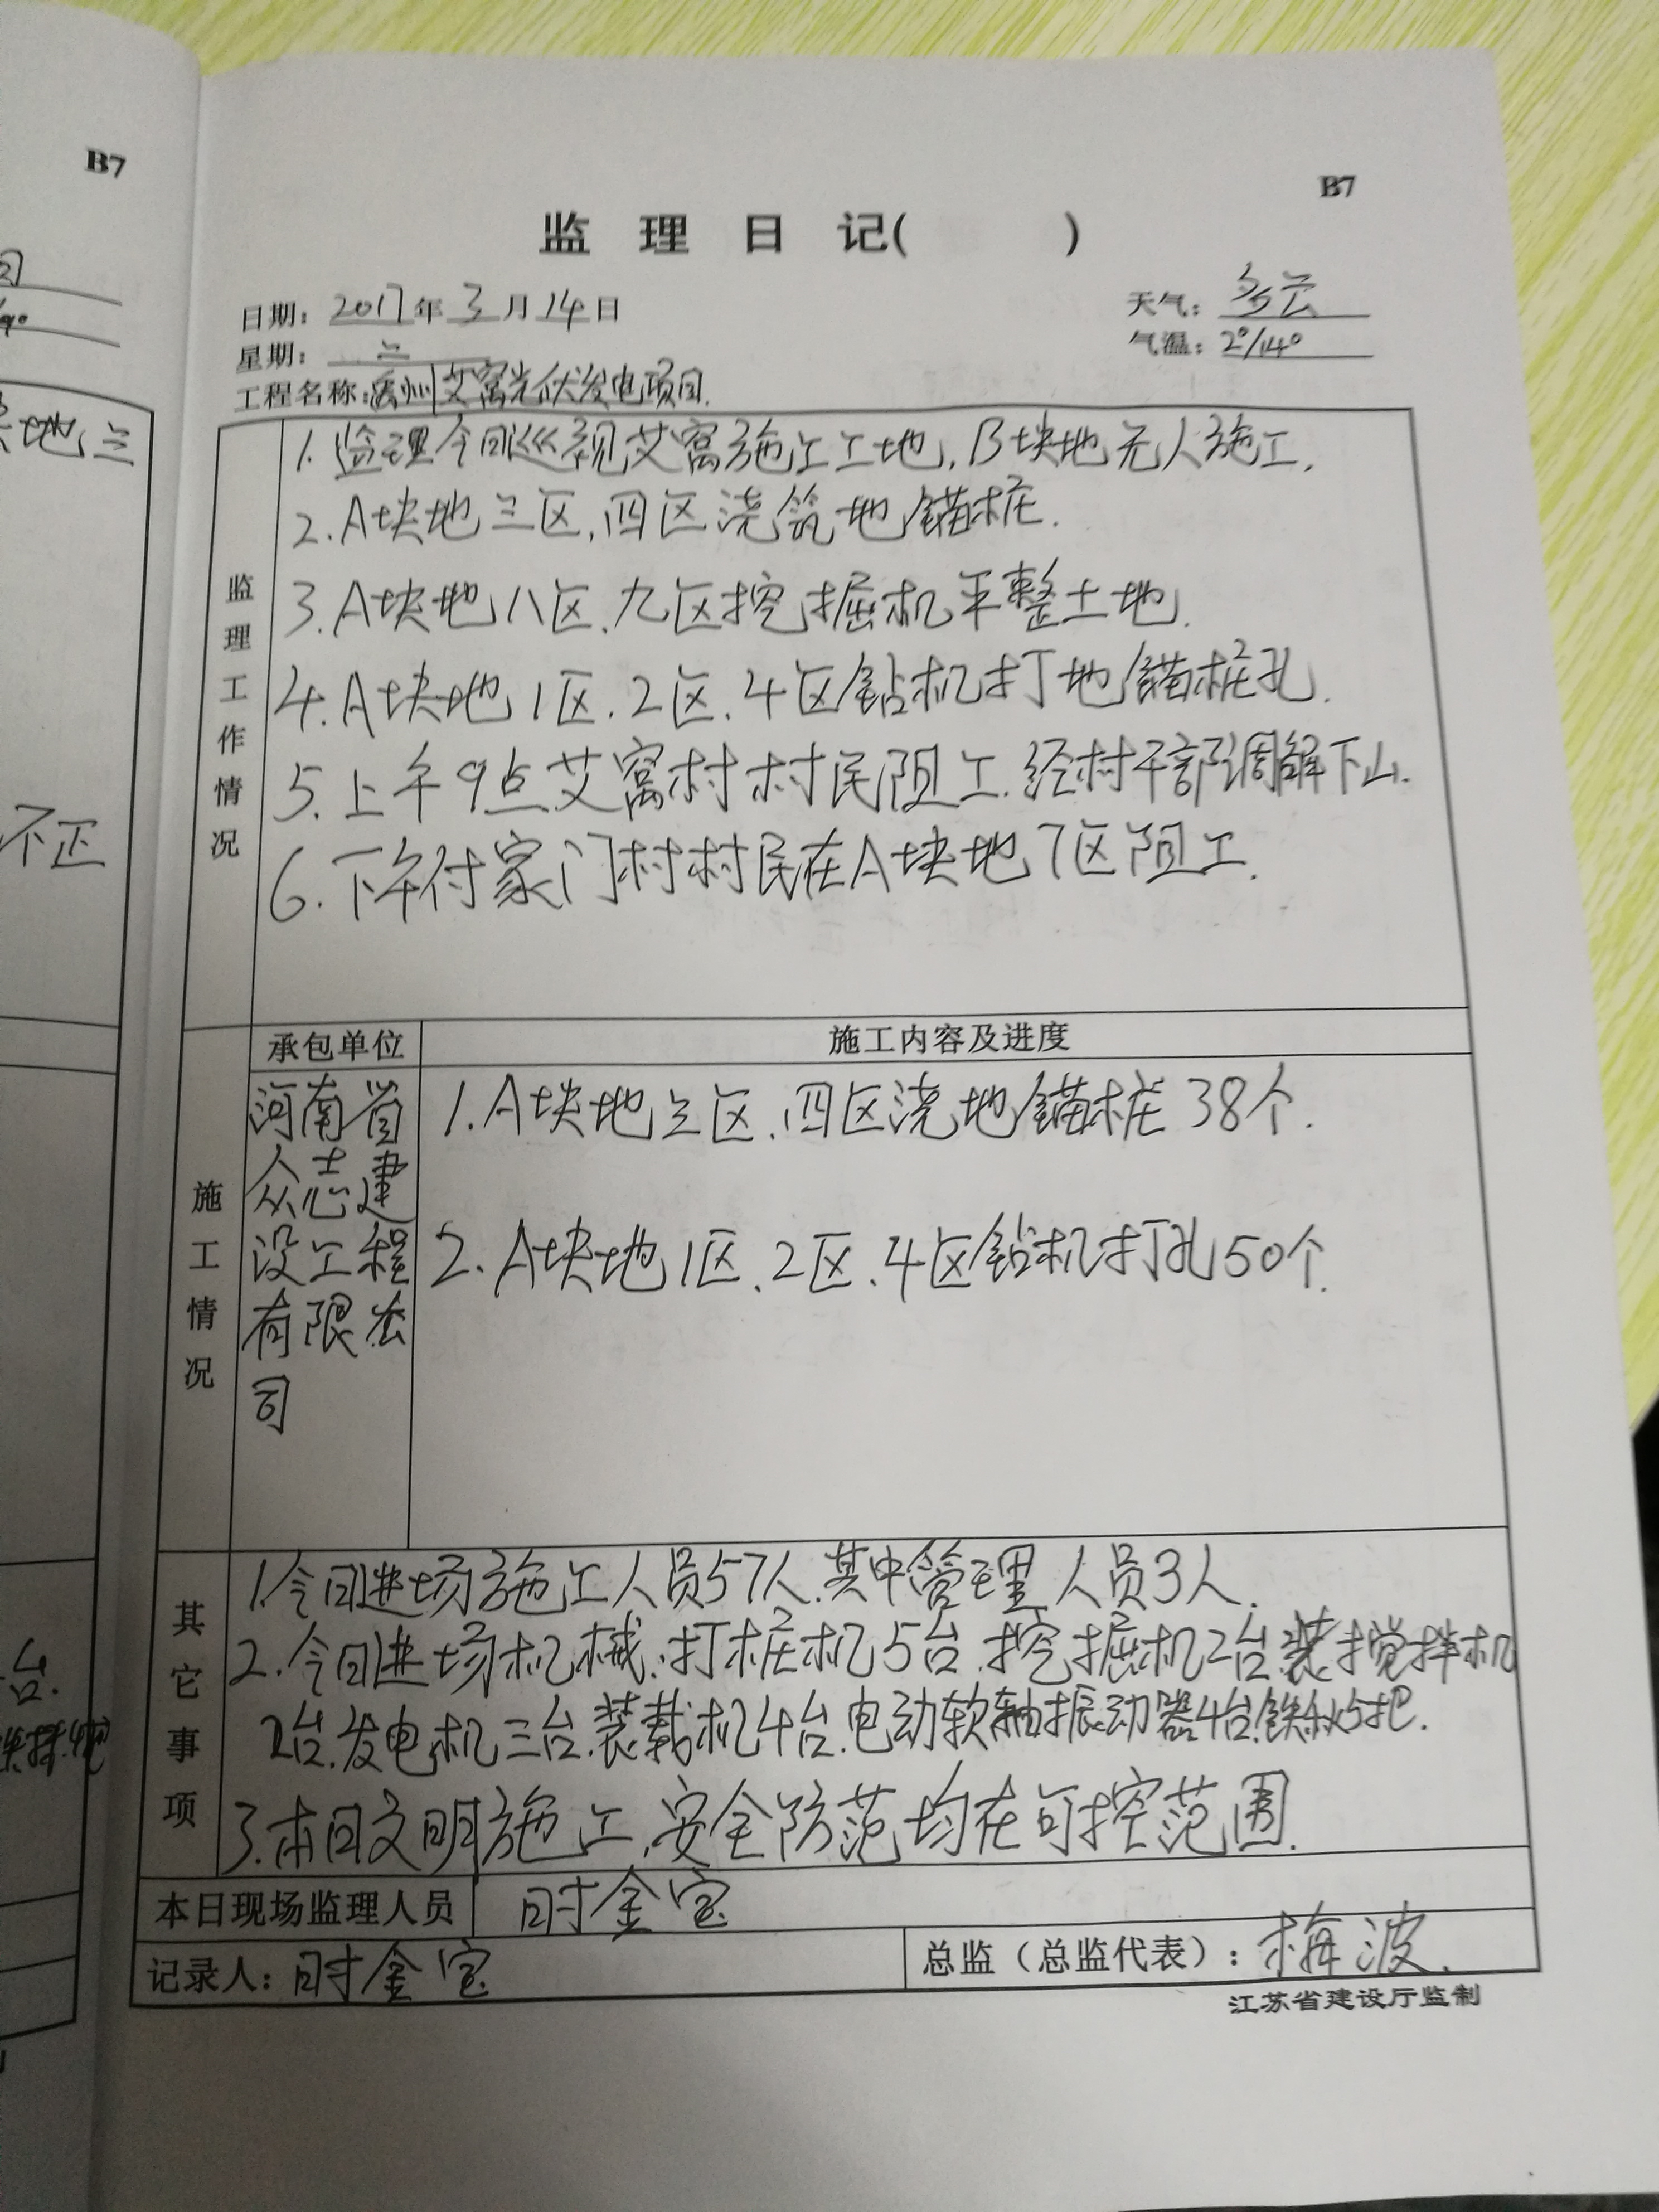 B7
B7
监 理 日 记( )
日期: 2017年 3月 14日
天气: 多云
星期: 二
气温: 2°/14°
工程名称: 禹州艾窝光伏发电项目.
监理工作情况
1. 监理今日巡视艾窝施工工地, B块地无人施工.
2. A块地三区, 四区浇筑地锚桩.
3. A块地八区、九区挖掘机平整土地.
4. A块地1区. 2区. 4区钻机打地锚桩孔.
5. 上午9点艾窝村村民阻工. 经村干部调解下山.
6. 下午付家门村村民在A块地7区阻工.
承包单位
施工内容及进度
施工情况
河南省
众志建
设工程
有限公
司
1. A块地三区、四区浇地锚桩38个.
2. A块地1区、2区、4区钻机打孔50个.
其它事项
1. 今日进场施工人员57人. 其中管理人员3人.
2. 今日进场机械. 打桩机5台. 挖掘机2台. 装搅拌机
2台. 发电机三台. 装载机4台. 电动软轴振动器4台. 铁锹5把.
3. 本日文明施工, 安全防范均在可控范围.
本日现场监理人员 时金宝
记录人: 时金宝
总监（总监代表）: 梅波.
江苏省建设厅监制
块地三
不正
台.